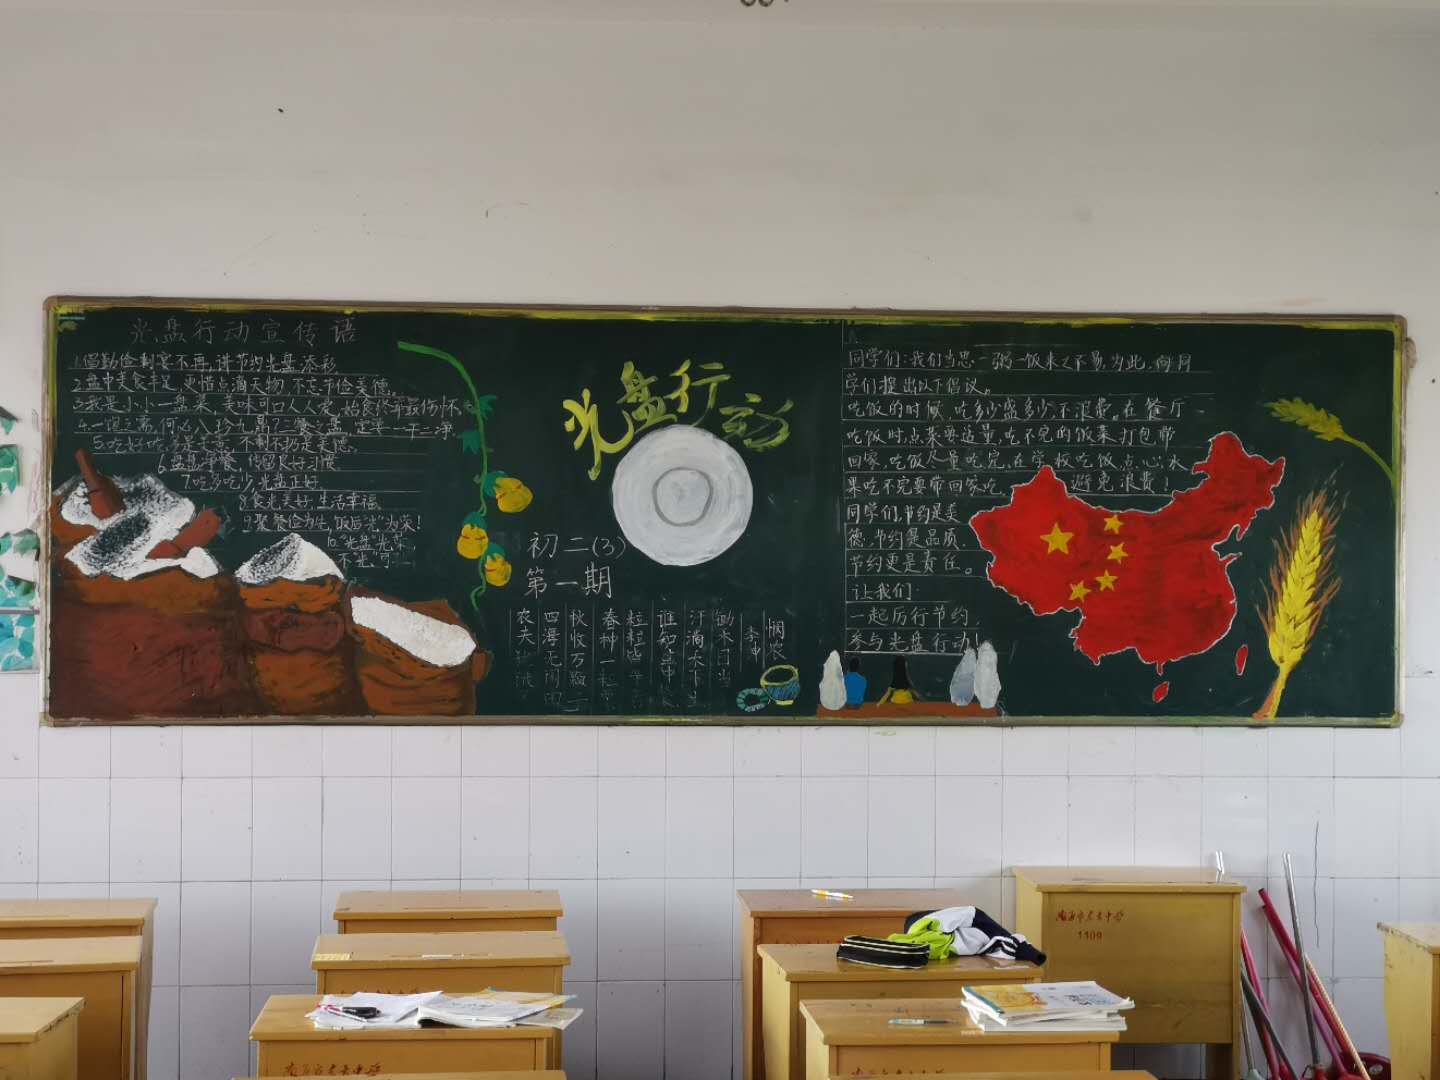 光盘行动宣传语
1.倡勤俭制宴不再,讲节约光盘添彩
2.盘中美食丰足,更惜点滴天物,不忘节俭美德。
3.我是小小一盘菜,美味可口人人爱,
4.一饱之需,何必八珍九鼎?三餐之盘,定要一干二净
5.吃好吃
6.盘盘净餐,
7.吃多吃少,光盘正好。
8.食光美好,生活幸福。
9.聚餐俭为先,饭后"光"为荣!
10."光盘"光荣
光盘行动
初二(3)
第一期
悯农
李绅
锄禾日当
汗滴禾下土
谁知盘中
粒粒皆辛苦
春种一粒粟
秋收万颗子
四海无闲田
农夫
同学们:我们当思一粥一饭来之不易,为此,向同
学们提出以下倡议。
吃饭的时候,吃多少盛多少,不浪费。在餐厅
吃饭时,点菜要适量,吃不完的饭菜打包带
回家,吃饭尽量吃完,在学校吃饭,点心水
果吃不完要带回家吃, 避免浪费!
同学们,节约是美
德,节约是品质,
节约更是责任。
让我们
一起厉行节约,
参与光盘行动!
1109